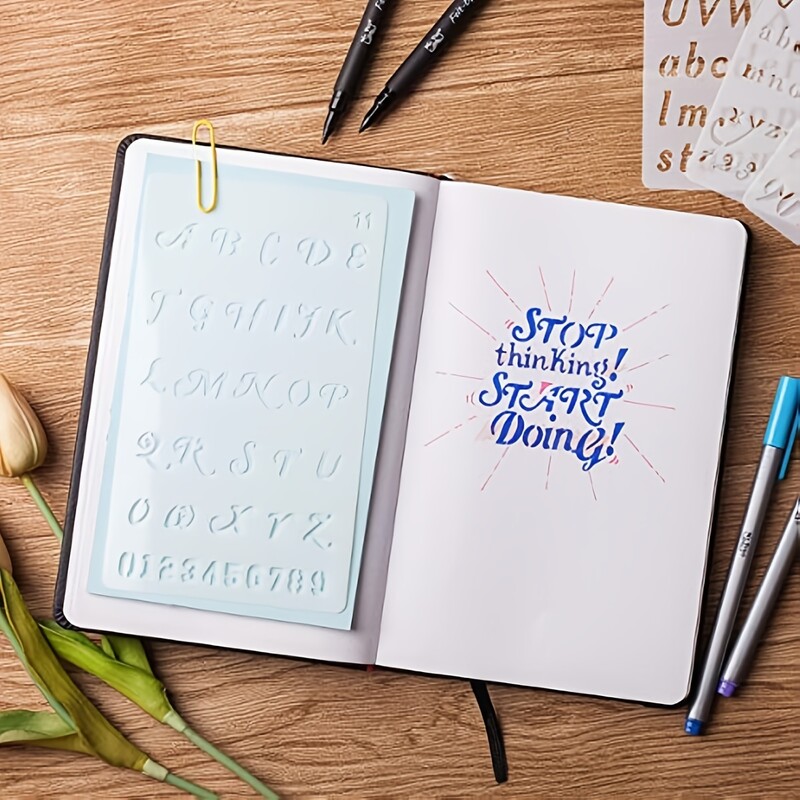 11
A B C D E
F G H I J K
L M N O P
Q R S T U
V W X Y Z
0123456789
STOP
thinking!
START
Doing!
UVW
abc
lm
st